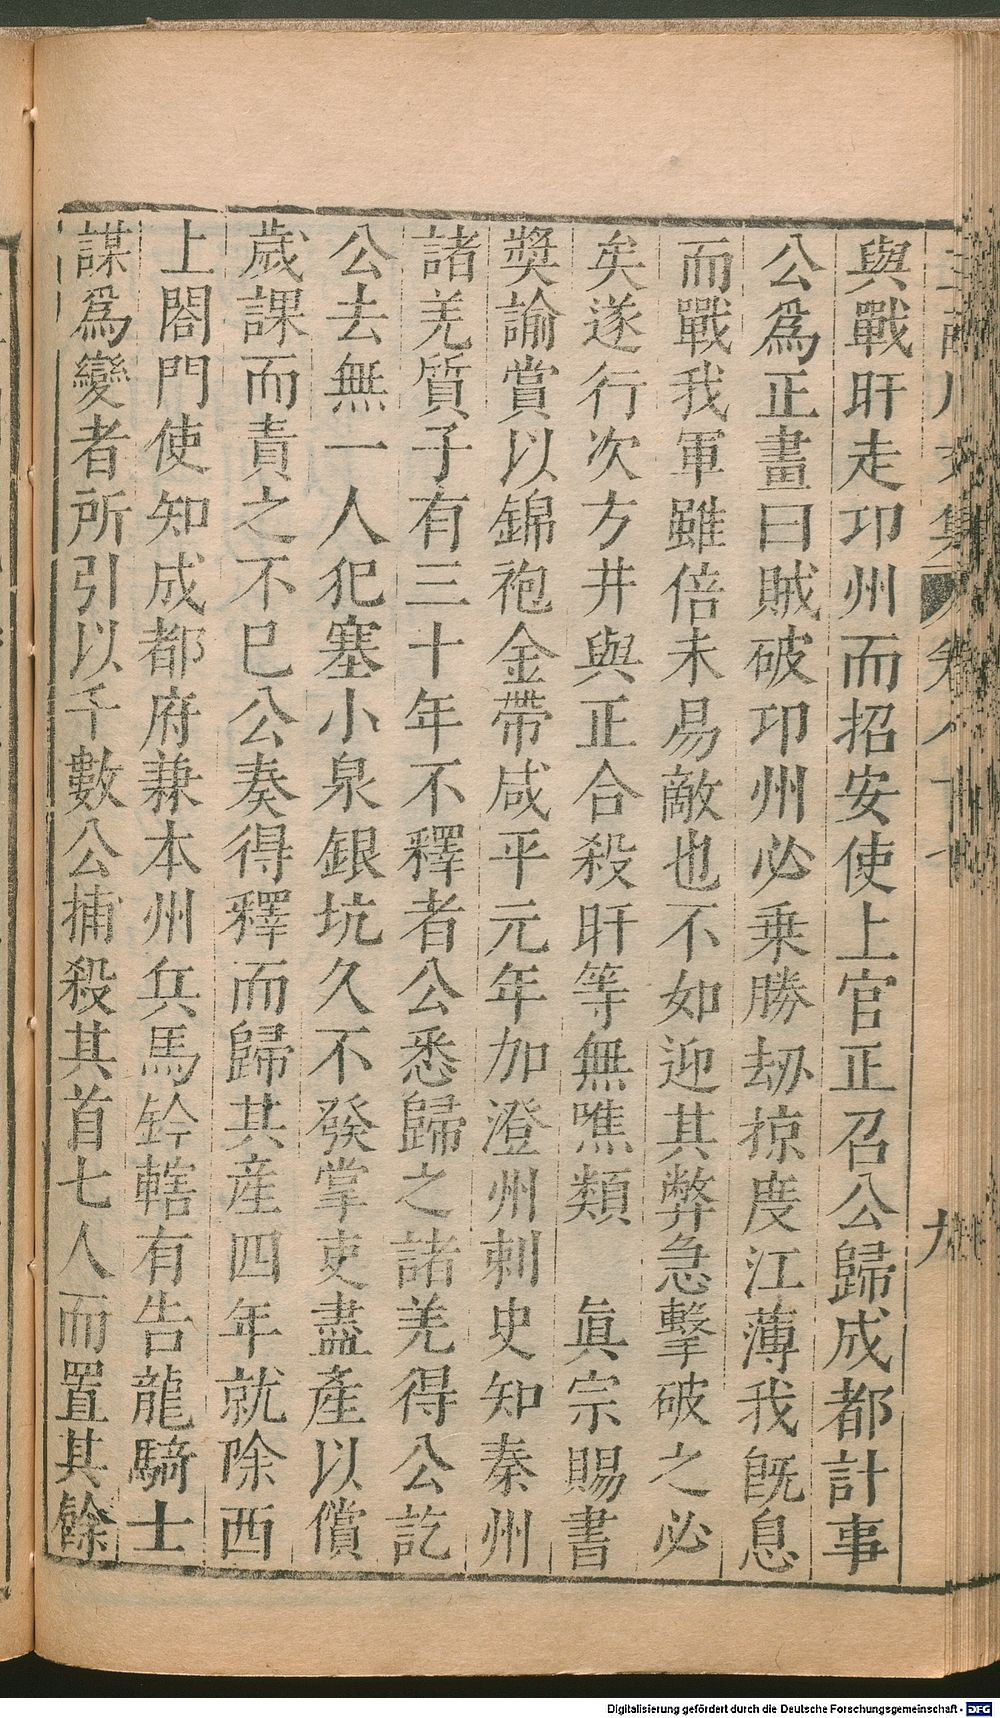 與戰旰走邛州而招安使上官正召公歸成都計事
公爲正畫曰賊破邛州必乗勝刼掠度江薄我旣息
而戰我軍雖倍未易敵也不如迎其弊急擊破之必
矣遂行次方井與正合殺旰等無噍類　眞宗賜書
奬諭賞以錦袍金帶咸平元年加澄州刺史知秦州
諸羌質子有三十年不釋者公悉歸之諸羌得公訖
公去無一人犯塞小泉銀坑久不發掌吏盡產以償
歲課而責之不已公奏得釋而歸其産四年就除西
上閤門使知成都府兼本州兵馬鈐轄有告龍騎士
謀爲變者所引以千數公捕殺其首七人而置其餘
九
Digitalisierung gefördert durch die Deutsche Forschungsgemeinschaft - DFG